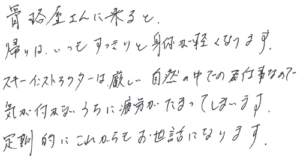 骨路屋さんに来ると、
帰りは、いつもすっきりと身体が軽くなります。
スキーインストラクターは厳しい自然の中でのお仕事なので
気が付かないうちに疲労がたまってしまいます。
定期的にこれからもお世話になります。